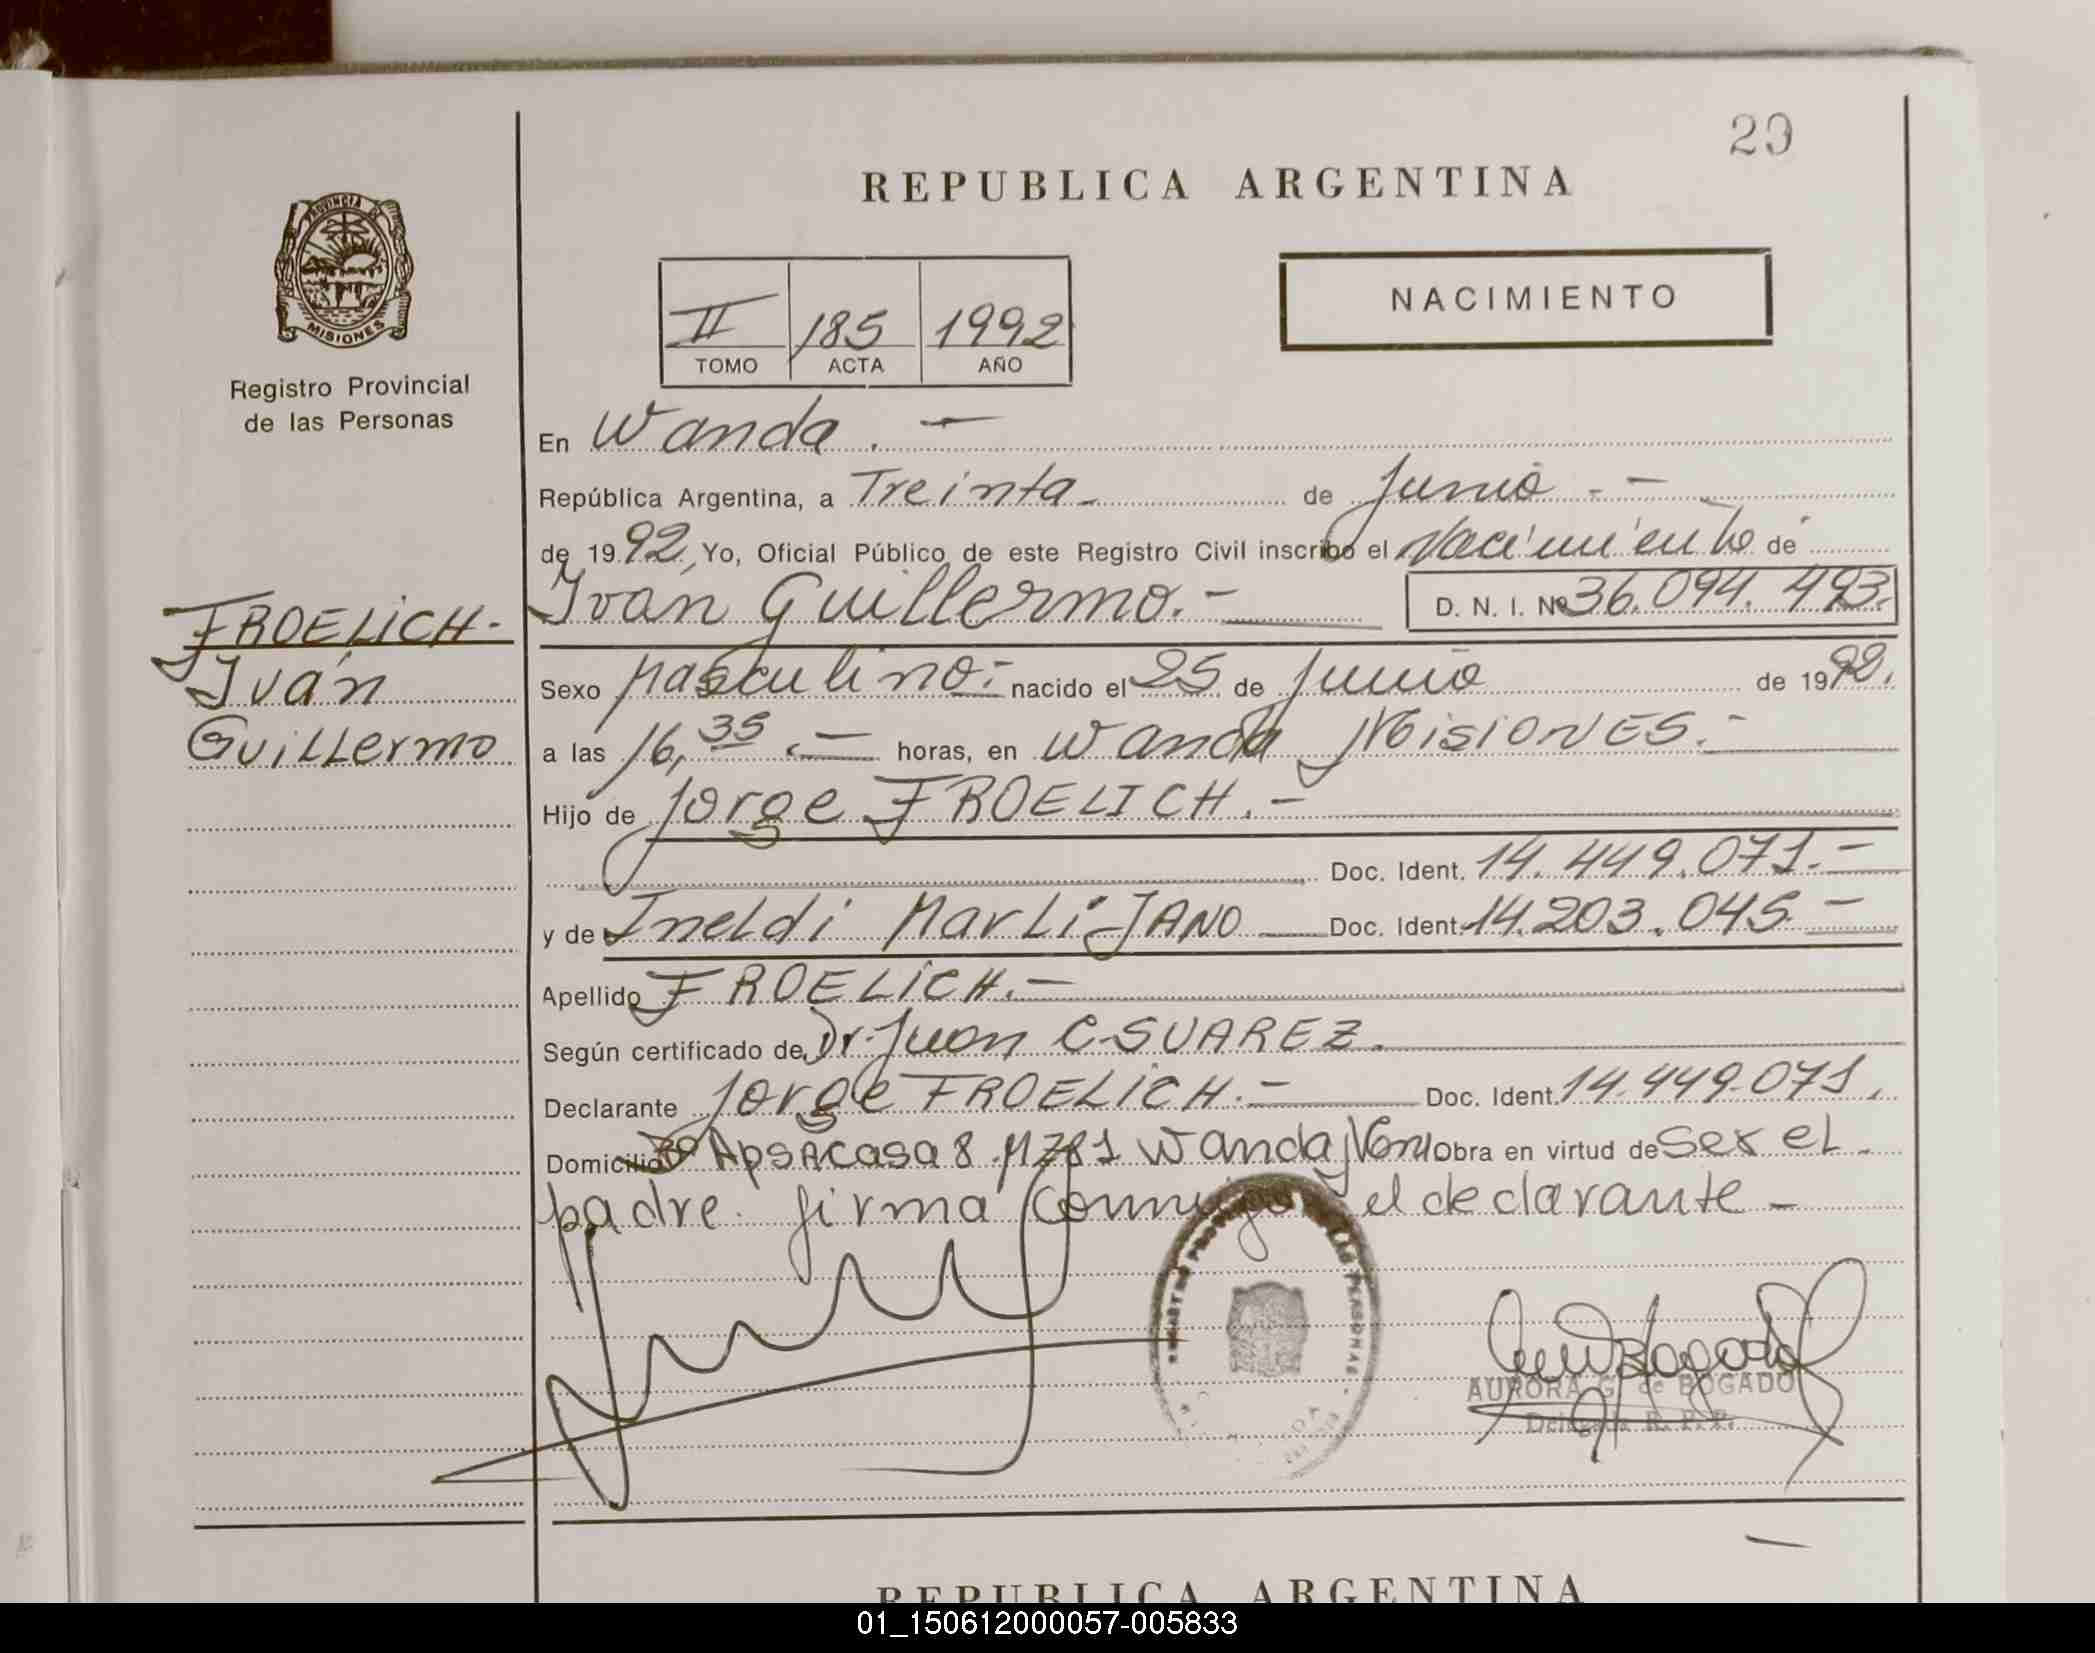 23
REPUBLICA ARGENTINA
PROVINCIA DE
MISIONES
Registro Provincial
de las Personas
II 185 1992
TOMO ACTA AÑO
NACIMIENTO
En Wanda. —
República Argentina, a Treinta - de Junio - —
de 1992, Yo, Oficial Público de este Registro Civil inscribo el Nacimiento de
Iván Guillermo. — D. N. I. Nº 36.094.493.
FROELICH -
Iván
Guillermo
Sexo Masculino. - nacido el 25 de Junio de 1992.
a las 16,35 . — horas, en Wanda Misiones. -
Hijo de Jorge FROELICH. —
Doc. Ident. 14.449.071. —
y de Ineldi Marli JANO — Doc. Ident. 14.203.045 —
Apellido FROELICH. —
Según certificado de Dr. Juan C. SUAREZ.
Declarante Jorge FROELICH. — Doc. Ident. 14.449.071.
Domicilio casa 8 Wanda Obra en virtud de ser el
padre. firma conmigo el declarante —
AURORA G. de BOGADO
Delegada R. P. P.
REPUBLICA ARGENTINA
01_150612000057-005833